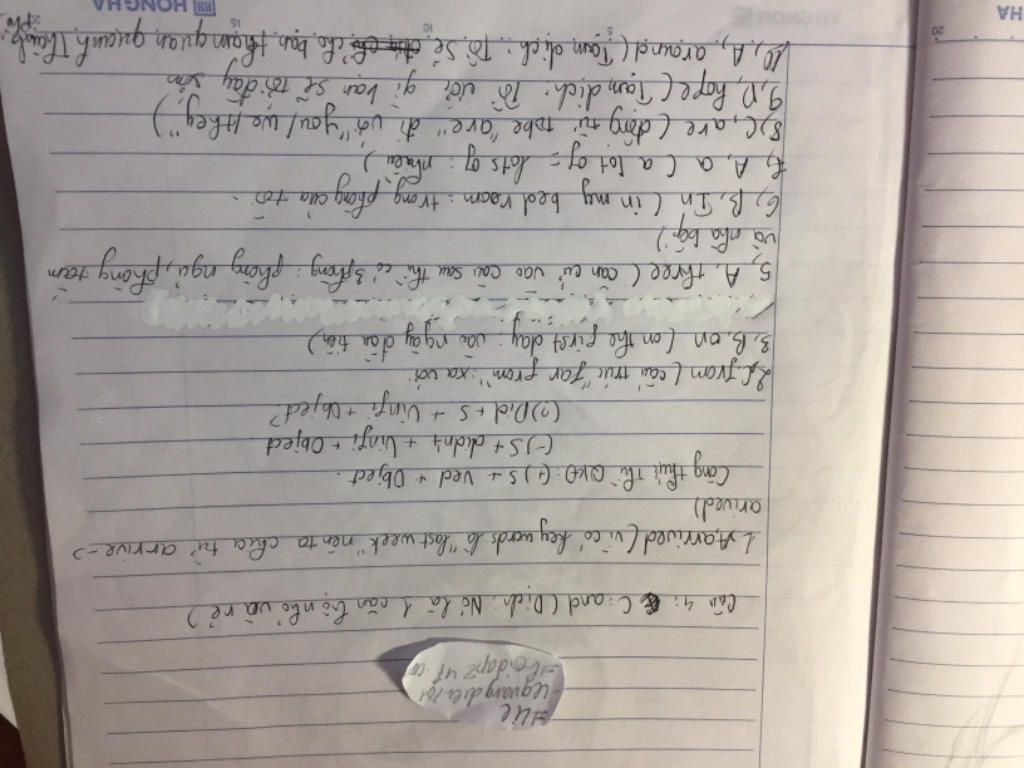 Hoidap247.com
Câu 4: C: and (Dịch: Nó là 1 căn hộ nhỏ và rẻ)
1. A, arrived (vì có keywords là "last week" nên ta chia từ arrive ->
arived)
Công thức thì QKĐ: (+) S + Ved + Object.
(-) S + didn't + Vinfi + Object
(?) Did + S + Vinfi + Object?
2, C from (cấu trúc "far from": xa với
3, B on (on the first day: vào ngày đầu tiên)
5, A three (căn cứ vào câu sau thì có 3 phòng: phòng ngủ, phòng tắm
và nhà bếp)
6, B, In (in my bed room: trong phòng của tôi
7, A, a (a lot of = lots of: nhiều)
8, C, are (động từ tobe "are" đi với "you/we/they")
9, D, hope (Tạm dịch: Tớ ước gì bạn sẽ tới đây sớm
10, A, around (Tạm dịch: Tớ sẽ cho bạn tham quan quanh thành
phố
5 10 15 20
HONG HA